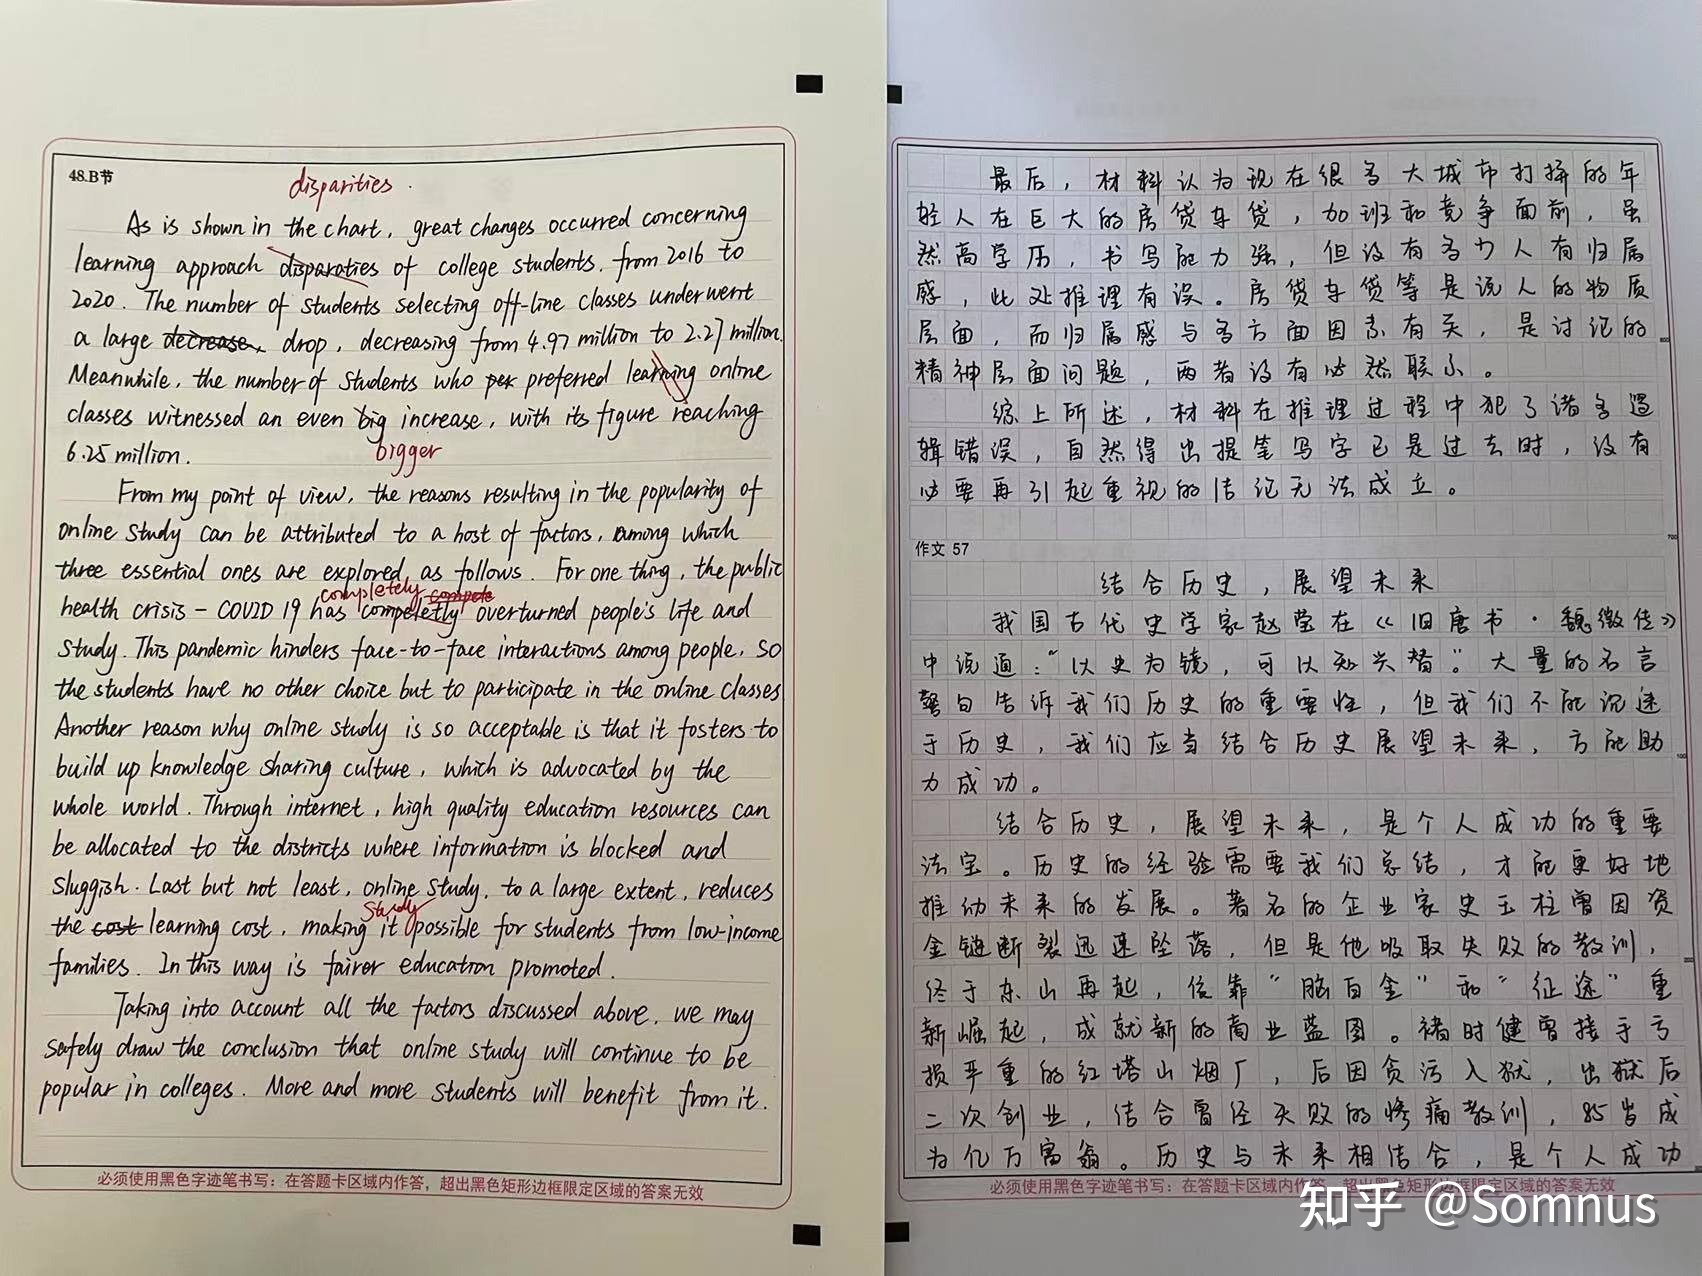 48.B节
disparities.
As is shown in the chart, great changes occurred concerning
learning approach disparaties of college students, from 2016 to
2020. The number of students selecting off-line classes underwent
a large decrease, drop, decreasing from 4.97 million to 2.27 million.
Meanwhile, the number of students who per preferred learning online
classes witnessed an even big increase, with its figure reaching
bigger
6.25 million.
From my point of view, the reasons resulting in the popularity of
online study can be attributed to a host of factors, among which
three essential ones are explored as follows. For one thing, the public
completely compete
health crisis – COVID 19 has competetly overturned people's life and
study. This pandemic hinders face-to-face interactions among people, so
the students have no other choice but to participate in the online classes
Another reason why online study is so acceptable is that it fosters to
build up knowledge sharing culture, which is advocated by the
whole world. Through internet, high quality education resources can
be allocated to the districts where information is blocked and
sluggish. Last but not least, online study, to a large extent, reduces
study
the cost learning cost, making it possible for students from low-income
families. In this way is fairer education promoted.
Taking into account all the factors discussed above, we may
safely draw the conclusion that online study will continue to be
popular in colleges. More and more students will benefit from it.
必须使用黑色字迹笔书写：在答题卡区域内作答，超出黑色矩形边框限定区域的答案无效
最后，材料认为现在很多大城市打拼的年
轻人在巨大的房贷车贷，加班和竞争面前，虽
然高学历，书写能力强，但没有多少人有归属
感，此处推理有误。房贷车贷等是说人的物质
层面，而归属感与多方面因素有关，是讨论的
精神层面问题，两者没有必然联系。
综上所述，材料在推理过程中犯了诸多逻
辑错误，自然得出提笔写字已是过去时，没有
必要再引起重视的结论无法成立。
作文 57
结合历史，展望未来
我国古代史学家赵莹在《旧唐书·魏徵传》
中说道："以史为镜，可以知兴替。"大量的名言
警句告诉我们历史的重要性，但我们不能沉迷
于历史，我们应当结合历史展望未来，方能助
力成功。
结合历史，展望未来，是个人成功的重要
法宝。历史的经验需要我们总结，才能更好地
推动未来的发展。著名的企业家史玉柱曾因资
金链断裂迅速坠落，但是他吸取失败的教训，
终于东山再起，依靠"脑白金"和"征途"重
新崛起，成就新的商业蓝图。褚时健曾接手亏
损严重的红塔山烟厂，后因贪污入狱，出狱后
二次创业，结合曾经失败的惨痛教训，85岁成
为亿万富翁。历史与未来相结合，是个人成功
必须使用黑色字迹笔书写：在答题卡区域内作答，超出黑色矩形边框限定区域的答案无效
知乎 @Somnus